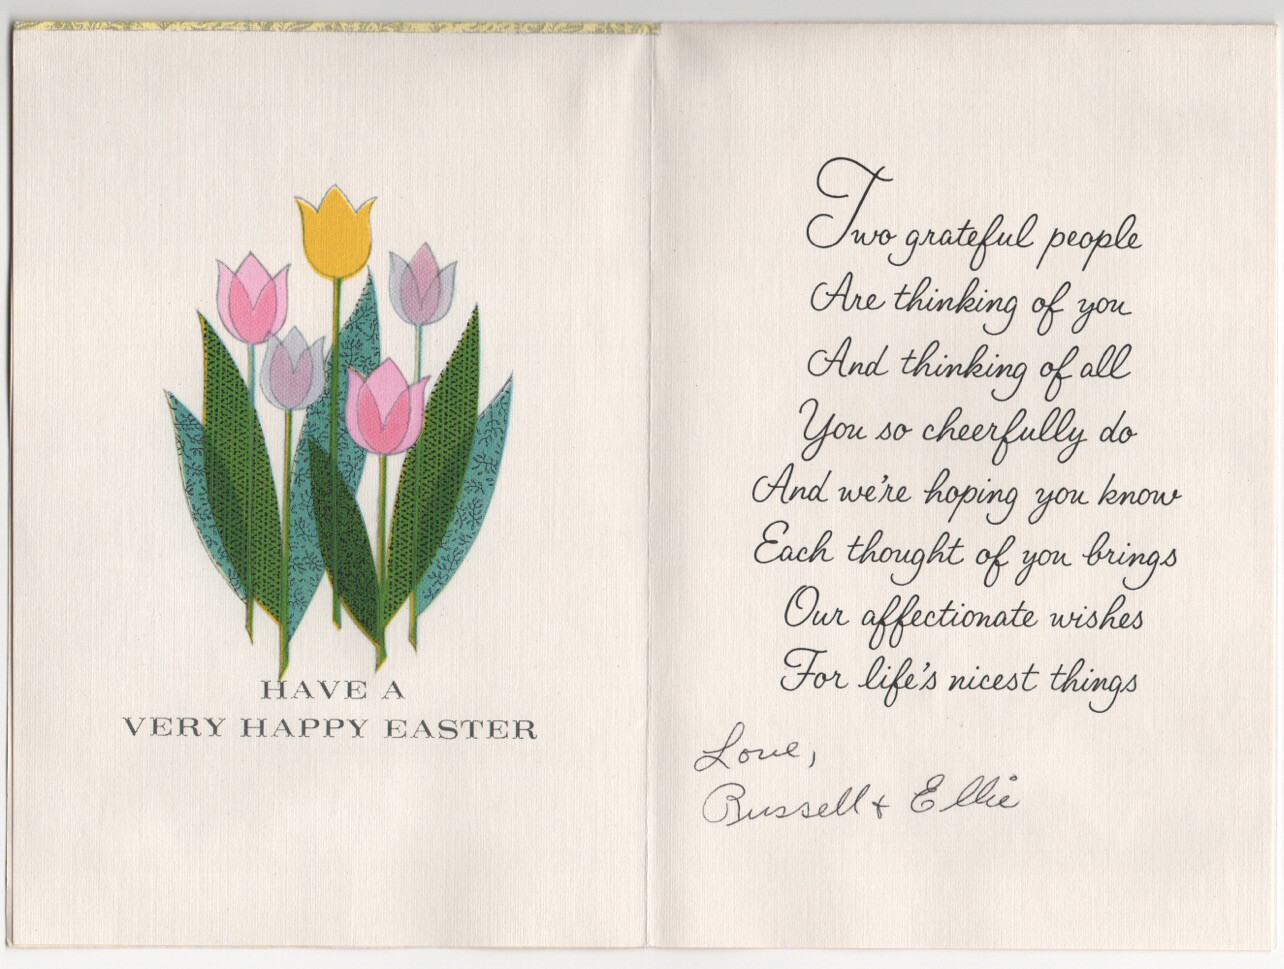 HAVE A
VERY HAPPY EASTER
Two grateful people
Are thinking of you
And thinking of all
You so cheerfully do
And we're hoping you know
Each thought of you brings
Our affectionate wishes
For life's nicest things
Love,
Russell & Ellie